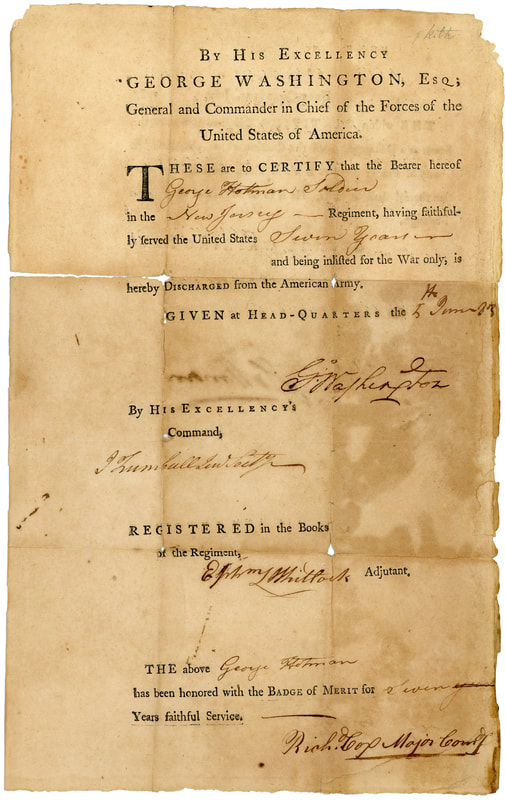 By His Excellency
GEORGE WASHINGTON, Esq;
General and Commander in Chief of the Forces of the
United States of America.
THESE are to CERTIFY that the Bearer hereof
George Hotman Soldier
in the New Jersey Regiment, having faithful-
ly served the United States Seven Years
and being inlisted for the War only, is
hereby Discharged from the American Army.
GIVEN at Head-Quarters the 5th June 83
Go Washington
By His Excellency's
Command,
J Trumbull Jun Secy
REGISTERED in the Books
of the Regiment,
Ephm Whitlock Adjutant,
THE above George Hotman
has been honored with the Badge of Merit for Seven
Years faithful Service.
Richd Cox Major Comdt